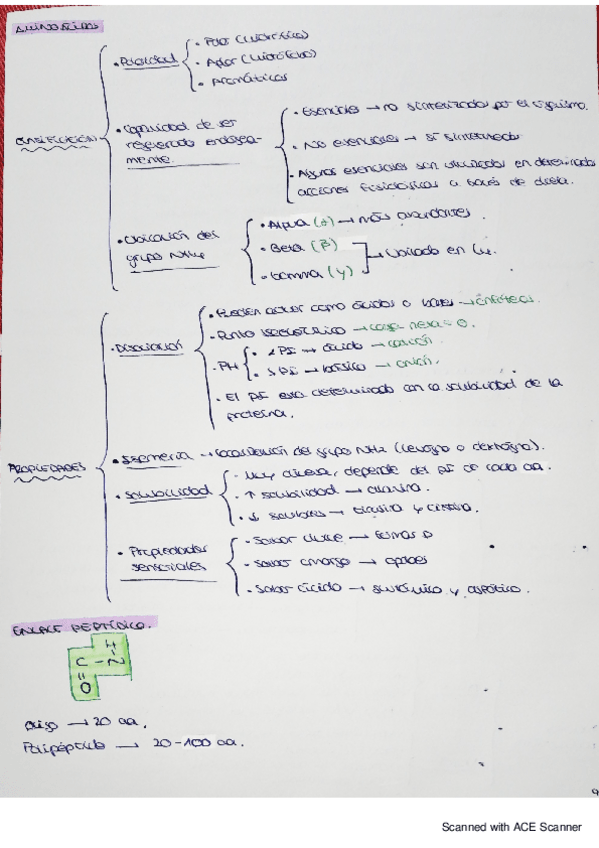 AMINOÁCIDOS
CLASIFICACIÓN
• Polaridad
• Polar (hidrofílico)
• Apolar (hidrofóbo)
• Aromáticos
• Capacidad de ser
regenerado endógena-
mente.
• Esenciales → no sintetizados por el organismo.
• No esenciales → sí sintetizados
• Algunos esenciales son utilizados en determinadas
acciones fisiológicas a través de dieta.
• Ubicación del
grupo NH4
• Alpha (α) → más abundantes.
• Beta (β)
• Gamma (γ)
Ubicado en
PROPIEDADES
• Disociación
• Pueden actuar como ácidos o bases → anfóteros.
• Punto isoeléctrico → carga neta = 0.
• PH
• < PI → ácido → catión.
• > PI → básico → anión.
• El PI esta determinado con la solubilidad de la
proteína.
• Isomería → Localización del grupo NH2 (levógiro o dextrógiro).
• Solubilidad
• Muy diversa, depende del PI de cada aa.
• ↑ solubilidad →
• ↓ solubles → y cisteína.
• Propiedades
sensoriales
• Sabor dulce → formas D
• Sabor amargo →
• Sabor ácido → glutámico y aspártico.
ENLACE PEPTÍDICO.
H
C – N
O
Oligo → 20 aa.
Polipéptido → 20-100 aa.
9
Scanned with ACE Scanner